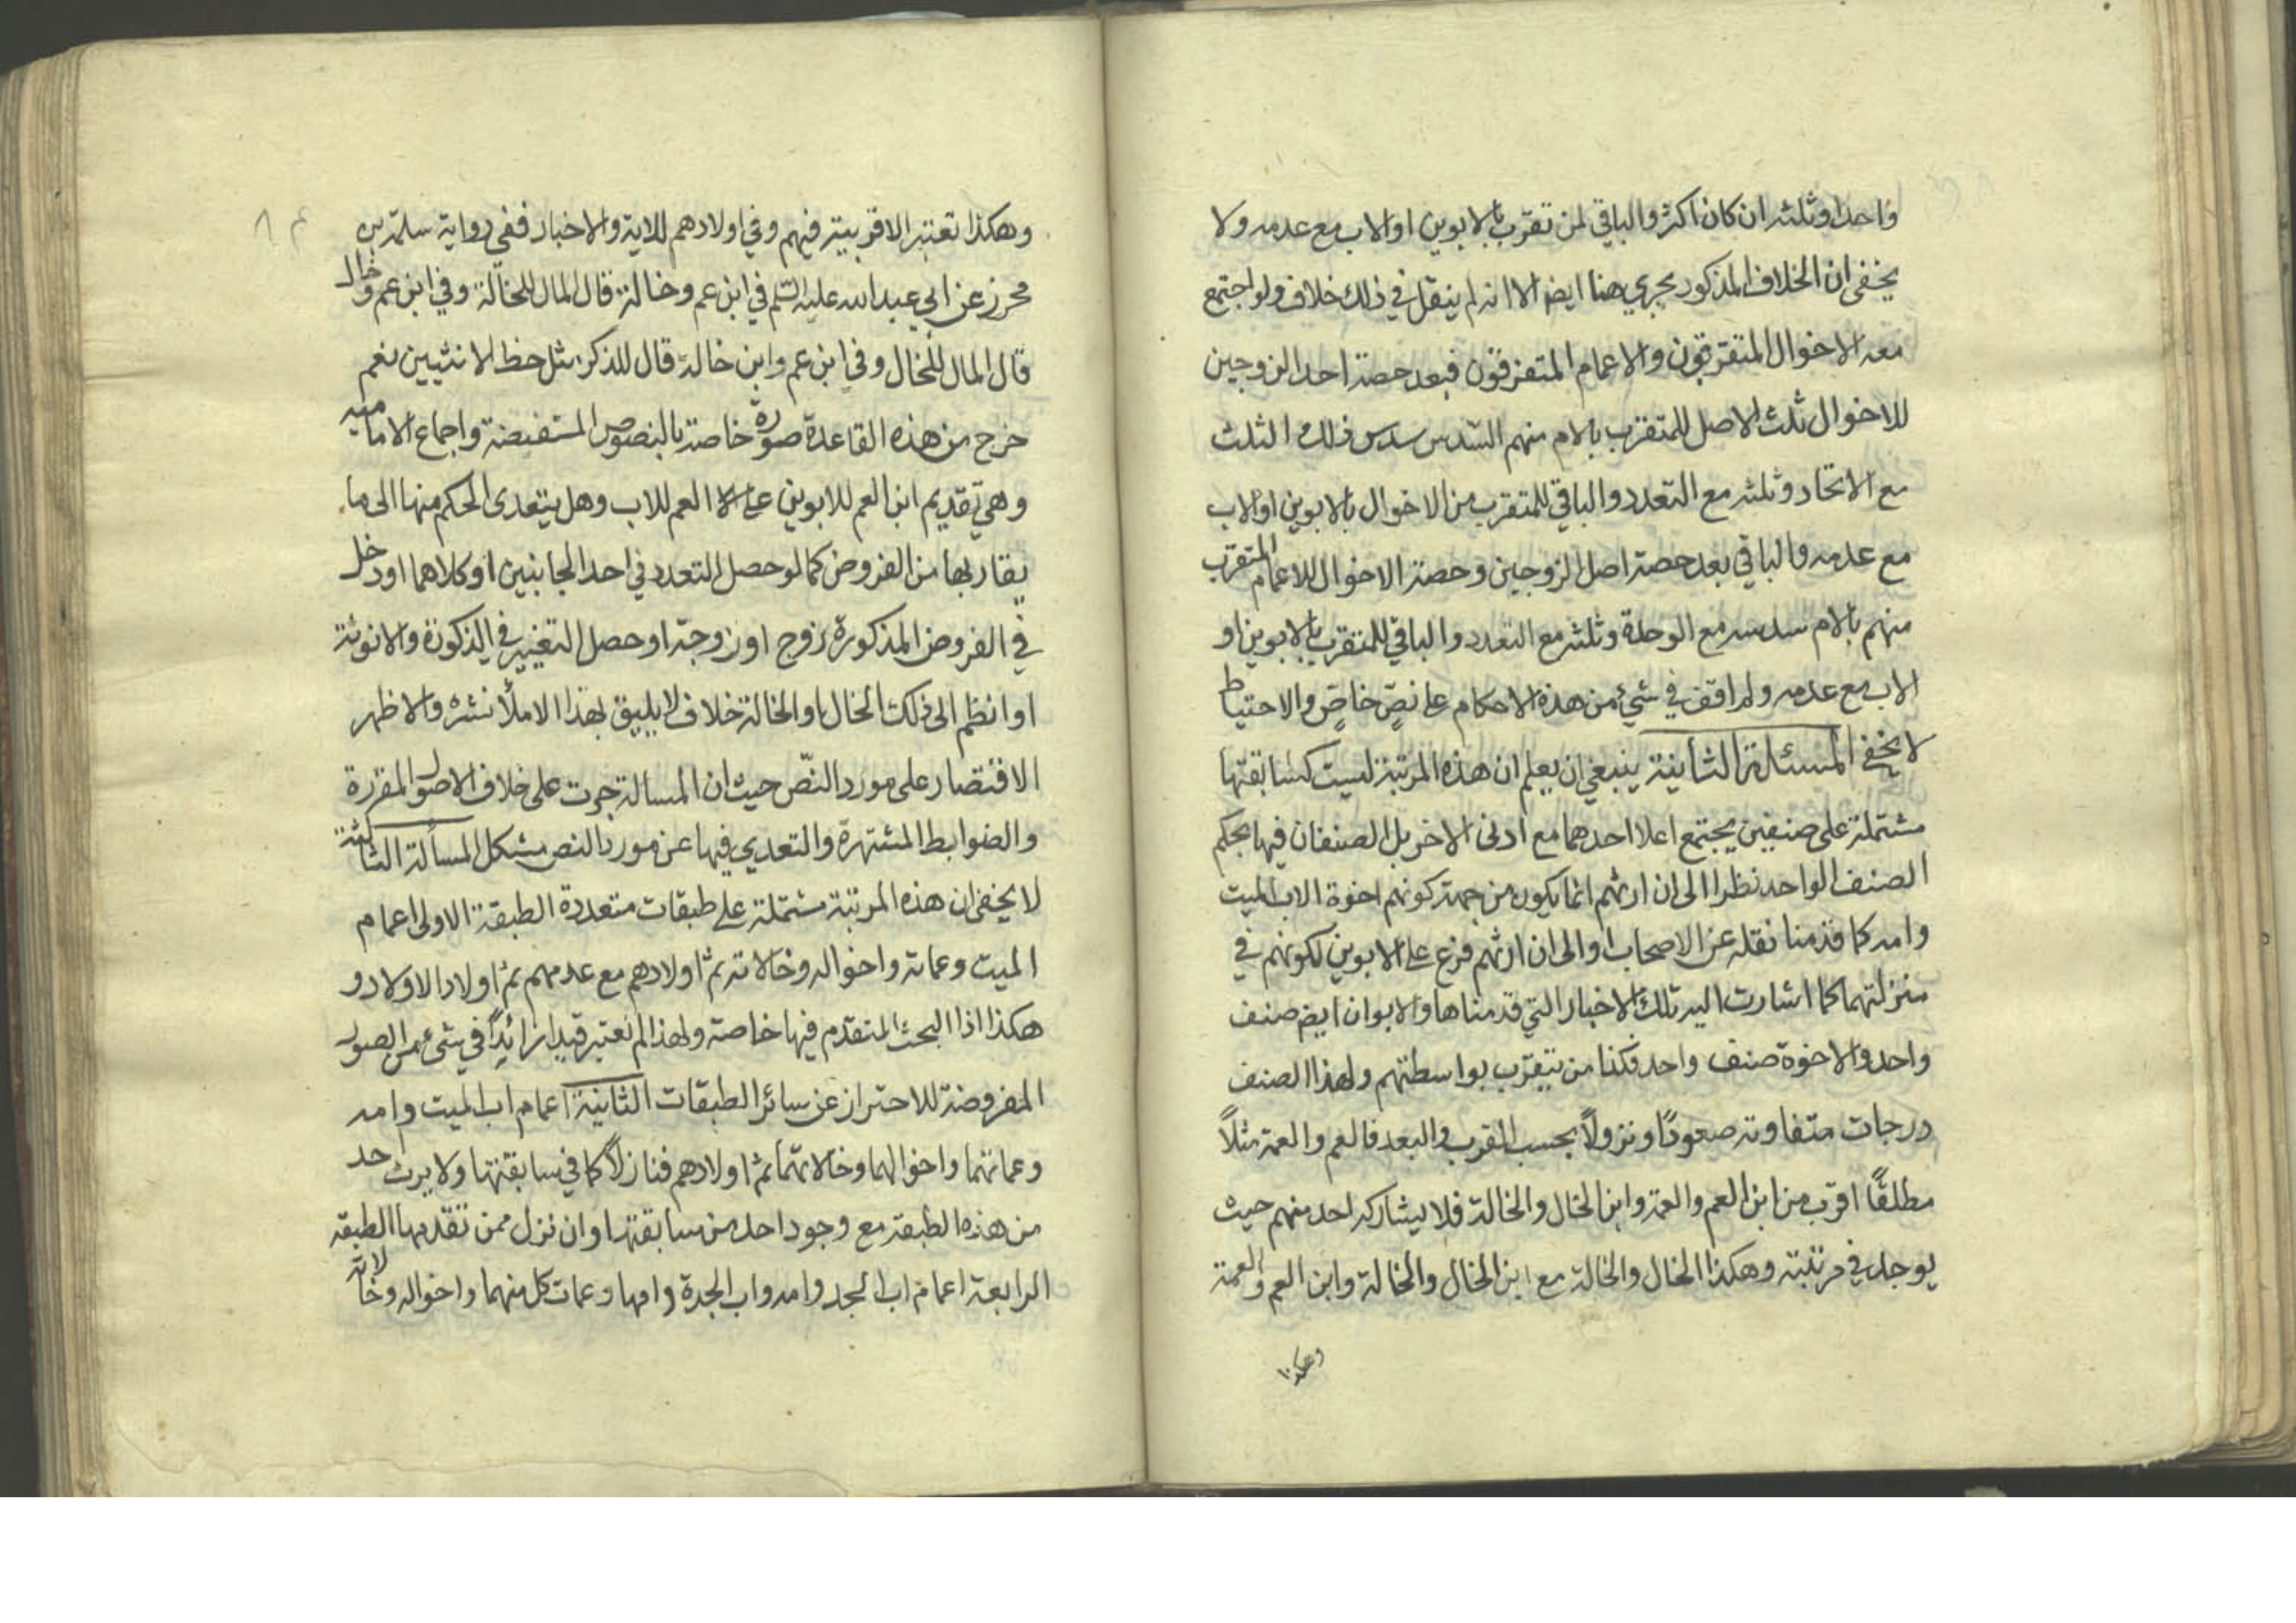 واحدا وثلثه ان كان اكثر والباقي لمن تقرب بالابوين او الاب مع عدمه ولا
يخفى ان الخلاف المذكور يجري هنا ايضا الا انه لم ينقل في ذلك خلاف ولو اجتمع
معه الاخوال المتفرقون والاعمام المتفرقون فبعد حصة احد الزوجين
للاخوال ثلث الاصل للمتقرب بالام منهم السدس سدس ذلك الثلث
مع الاتحاد وثلثه مع التعدد والباقي للمتقرب من الاخوال بالابوين او الاب
مع عدمه والباقي بعد حصة اصل الزوجين وحصة الاخوال للاعمام المتقرب
منهم بالام سدسه مع الوحدة وثلثه مع التعدد والباقي للمتقرب بالابوين او
الاب مع عدمه ولم اقف في شيء من هذه الاحكام على نصٍّ خاصٍّ والاحتياط
لا يخفى المسئلة الثانية ينبغي ان يعلم ان هذه المرتبة ليست كسابقتها
مشتملة على صنفين يجتمع اعلا احدهما مع ادنى الاخر بل الصنفان فيها بحكم
الصنف الواحد نظرا الى ان ارثهم انما يكون من جهة كونهم اخوة الاب الميت
وامه كما قدمنا نقله عن الاصحاب والى ان ارثهم فرع على الابوين لكونهم في
منزلتهما كما اشارت اليه تلك الاخبار التي قدمناها والابوان ايضا صنف
واحد والاخوة صنف واحد فكذا من يتقرب بواسطتهم ولهذا الصنف
درجات متفاوته صعودًا ونزولًا بحسب القرب والبعد فالعم والعمة مثلًا
مطلقًا اقرب من ابن العم والعمة وابن الخال والخالة فلا يشاركه احد منهم حيث
يوجد في مرتبته وهكذا الخال والخالة مع ابن الخال والخالة وابن العم والعمة
وهكذا
وهكذا تعتبر الاقربية فيهم وفي اولادهم للاية والاخبار ففي رواية سلمة بن
محرز عن ابي عبد الله عليه السلم في ابن عم وخالة قال المال للخالة وفي ابن عم وخال
قال المال للخال وفي ابن عم وابن خالة قال للذكر مثل حظ الانثيين نعم
خرج من هذه القاعدة صورة خاصة بالنصوص المستفيضة واجماع الامامية
وهي تقديم ابن العم للابوين على العم للاب وهل يتعدى الحكم منها الى ما
يقاربها من الفروض كما لو حصل التعدد في احد الجانبين او كلاهما او دخل
في الفروض المذكورة زوج او زوجة او حصل التغيير في الذكورة والانوثة
او انظم الى ذلك الخال او الخالة خلاف لا يليق بهذا الاملأ نشره والاظهر
الاقتصار على مورد النصّ حيث ان المسالة جرت على خلاف الاصول المقررة
والضوابط المشتهرة والتعدي فيها عن مورد النص مشكل المسألة الثالثة
لا يخفى ان هذه المرتبة مشتملة على طبقات متعددة الطبقة الاولى اعمام
الميت وعماته واخواله وخالاته ثم اولادهم مع عدمهم ثم اولاد الاولاد و
هكذا اذا البحث المتقدم فيها خاصة ولهذا لم نعتبر قيدا زائدًا في شيء من الصور
المفروضة للاحتراز عن سائر الطبقات الثانية اعمام اب الميت وامه
وعماتهما واخوالهما وخالاتهما ثم اولادهم فنازلًا كما في سابقتها ولا يرث احد
من هذه الطبقة مع وجود احد من سابقتها وان نزل ممن تقدمها الطبقه
الرابعة اعمام اب الجد وامه واب الجدة وامها وعمات كل منهما واخواله وخالاته